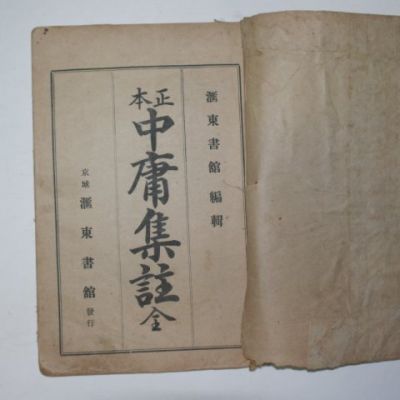 滙東書館 編輯
正本
中庸集註 全
京城 滙東書館 發行